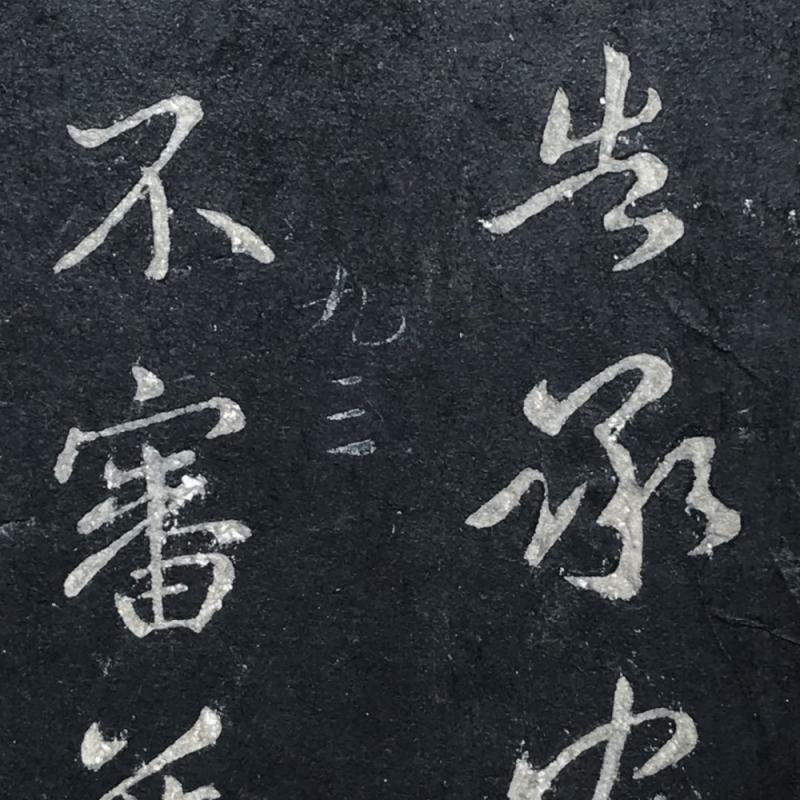 告承
九三
不審